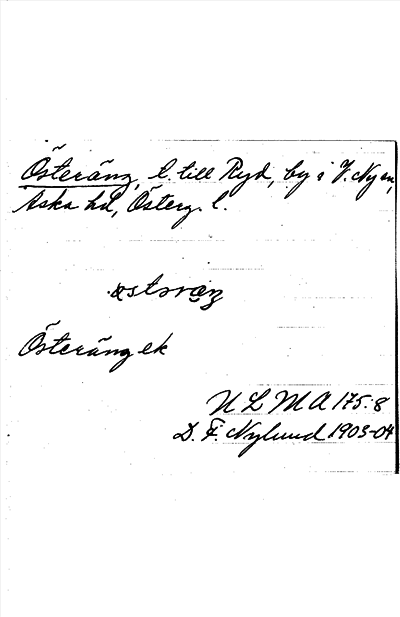 Österäng, l. till Ryd, by i V. Ny sn,
Aska hd, Österg. l.
Österäng ek
ULMA 175:8
D. F. Nylund 1903-04